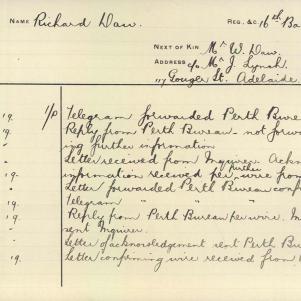 NAME Richard Daw. REG. &C. 16th Ba
NEXT OF KIN Mr W. Daw.
ADDRESS c/o Mr J. Lynch
Gouger St. Adelaide
19. 1/P Telegram forwarded Perth Bure
19. Reply from Perth Bureau - not forw
ing further information
" Letter received from Inquirer. Ackn
19. information received per wire from
further
" Letter forwarded Perth Bureau conf
19. Telegram " "
19. Reply from Perth Bureau per wire. In
sent Inquirer.
" Letter of acknowledgement sent Perth Bu
19. Letter confirming wire received from